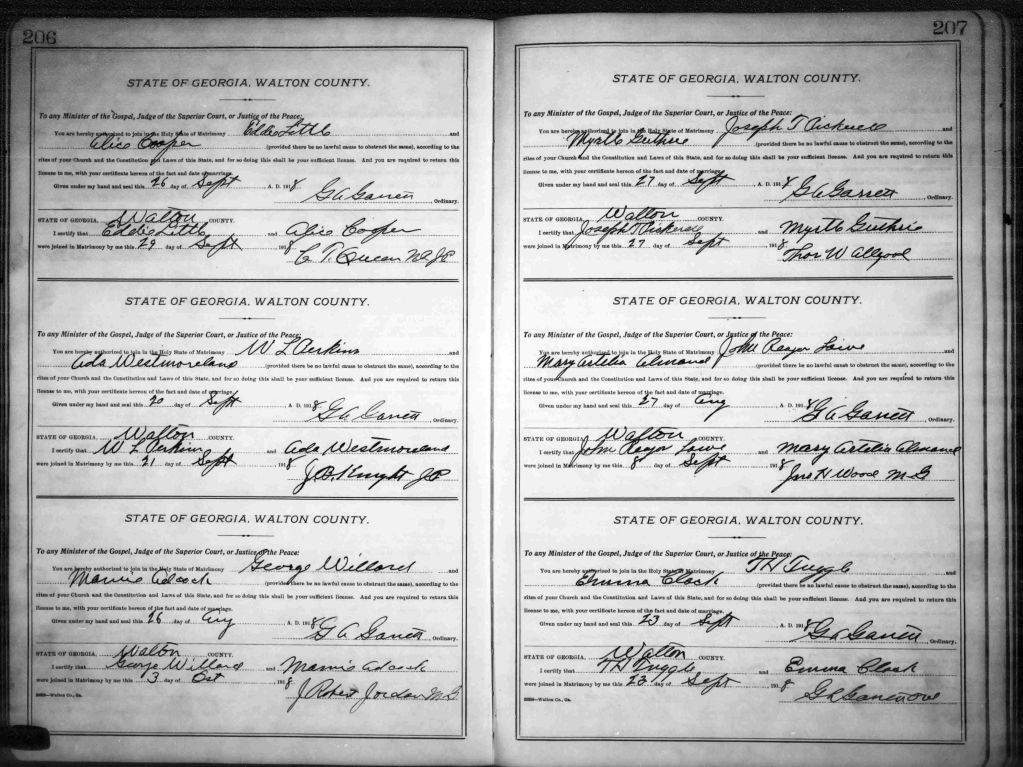 206
STATE OF GEORGIA, WALTON COUNTY.
To any Minister of the Gospel, Judge of the Superior Court, or Justice of the Peace:
You are hereby authorized to join in the Holy State of Matrimony Eddie Little and
Alice Cooper (provided there be no lawful cause to obstruct the same), according to the
rites of your Church and the Constitution and Laws of this State, and for so doing this shall be your sufficient license. And you are required to return this
license to me, with your certificate hereon of the fact and date of marriage.
Given under my hand and seal this 26 day of Sept A. D. 191
G A Garrett
, Ordinary.
STATE OF GEORGIA, Walton COUNTY.
I certify that Eddie Little and Alice Cooper
were joined in Matrimony by me this 29 day of Sept 1918
C. T. Queen N.P. J.P.
STATE OF GEORGIA, WALTON COUNTY.
To any Minister of the Gospel, Judge of the Superior Court, or Justice of the Peace:
You are hereby authorized to join in the Holy State of Matrimony W L Perkins and
Ada Westmoreland (provided there be no lawful cause to obstruct the same), according to the
rites of your Church and the Constitution and Laws of this State, and for so doing this shall be your sufficient license. And you are required to return this
license to me, with your certificate hereon of the fact and date of marriage.
Given under my hand and seal this 20 day of Sept A. D. 1918
G A Garrett
, Ordinary.
STATE OF GEORGIA, Walton COUNTY.
I certify that W L Perkins and Ada Westmoreland
were joined in Matrimony by me this 21 day of Sept 1918
J. B. Knight J P
STATE OF GEORGIA, WALTON COUNTY.
To any Minister of the Gospel, Judge of the Superior Court, or Justice of the Peace:
You are hereby authorized to join in the Holy State of Matrimony George Willard and
Mamie Adcock (provided there be no lawful cause to obstruct the same), according to the
rites of your Church and the Constitution and Laws of this State, and for so doing this shall be your sufficient license. And you are required to return this
license to me, with your certificate hereon of the fact and date of marriage.
Given under my hand and seal this 26 day of Aug A. D. 1918
G A Garrett
, Ordinary.
STATE OF GEORGIA, Walton COUNTY.
I certify that George Willard and Mamie Adcock
were joined in Matrimony by me this 13 day of Oct 1918
J Robert Jordan M. G
Walton Co., Ga.
207
STATE OF GEORGIA, WALTON COUNTY.
To any Minister of the Gospel, Judge of the Superior Court, or Justice of the Peace:
You are hereby authorized to join in the Holy State of Matrimony Joseph T Pickerell and
Myrtle Guthrie (provided there be no lawful cause to obstruct the same), according to the
rites of your Church and the Constitution and Laws of this State, and for so doing this shall be your sufficient license. And you are required to return this
license to me, with your certificate hereon of the fact and date of marriage.
Given under my hand and seal this 27 day of Sept A. D. 191
G A Garrett
, Ordinary.
STATE OF GEORGIA, Walton COUNTY.
I certify that Joseph T Pickerell and Myrtle Guthrie
were joined in Matrimony by me this 27 day of Sept 1918
Thos W Allgood
STATE OF GEORGIA, WALTON COUNTY.
To any Minister of the Gospel, Judge of the Superior Court, or Justice of the Peace:
You are hereby authorized to join in the Holy State of Matrimony John Reagor Lowe and
Mary Artelia Almand (provided there be no lawful cause to obstruct the same), according to the
rites of your Church and the Constitution and Laws of this State, and for so doing this shall be your sufficient license. And you are required to return this
license to me, with your certificate hereon of the fact and date of marriage.
Given under my hand and seal this 27 day of Aug A. D. 1918
G A Garrett
, Ordinary.
STATE OF GEORGIA, Walton COUNTY.
I certify that John Reagor Lowe and Mary Artelia Almand
were joined in Matrimony by me this 8 day of Sept 1918
Jno H Wood M G
STATE OF GEORGIA, WALTON COUNTY.
To any Minister of the Gospel, Judge of the Superior Court, or Justice of the Peace:
You are hereby authorized to join in the Holy State of Matrimony T H Tuggle and
Emma Clack (provided there be no lawful cause to obstruct the same), according to the
rites of your Church and the Constitution and Laws of this State, and for so doing this shall be your sufficient license. And you are required to return this
license to me, with your certificate hereon of the fact and date of marriage.
Given under my hand and seal this 23 day of Sept A. D. 1918
G A Garrett
, Ordinary.
STATE OF GEORGIA, Walton COUNTY.
I certify that T H Tuggle and Emma Clack
were joined in Matrimony by me this 23 day of Sept 1918
G A Garrett Ord
Walton Co., Ga.